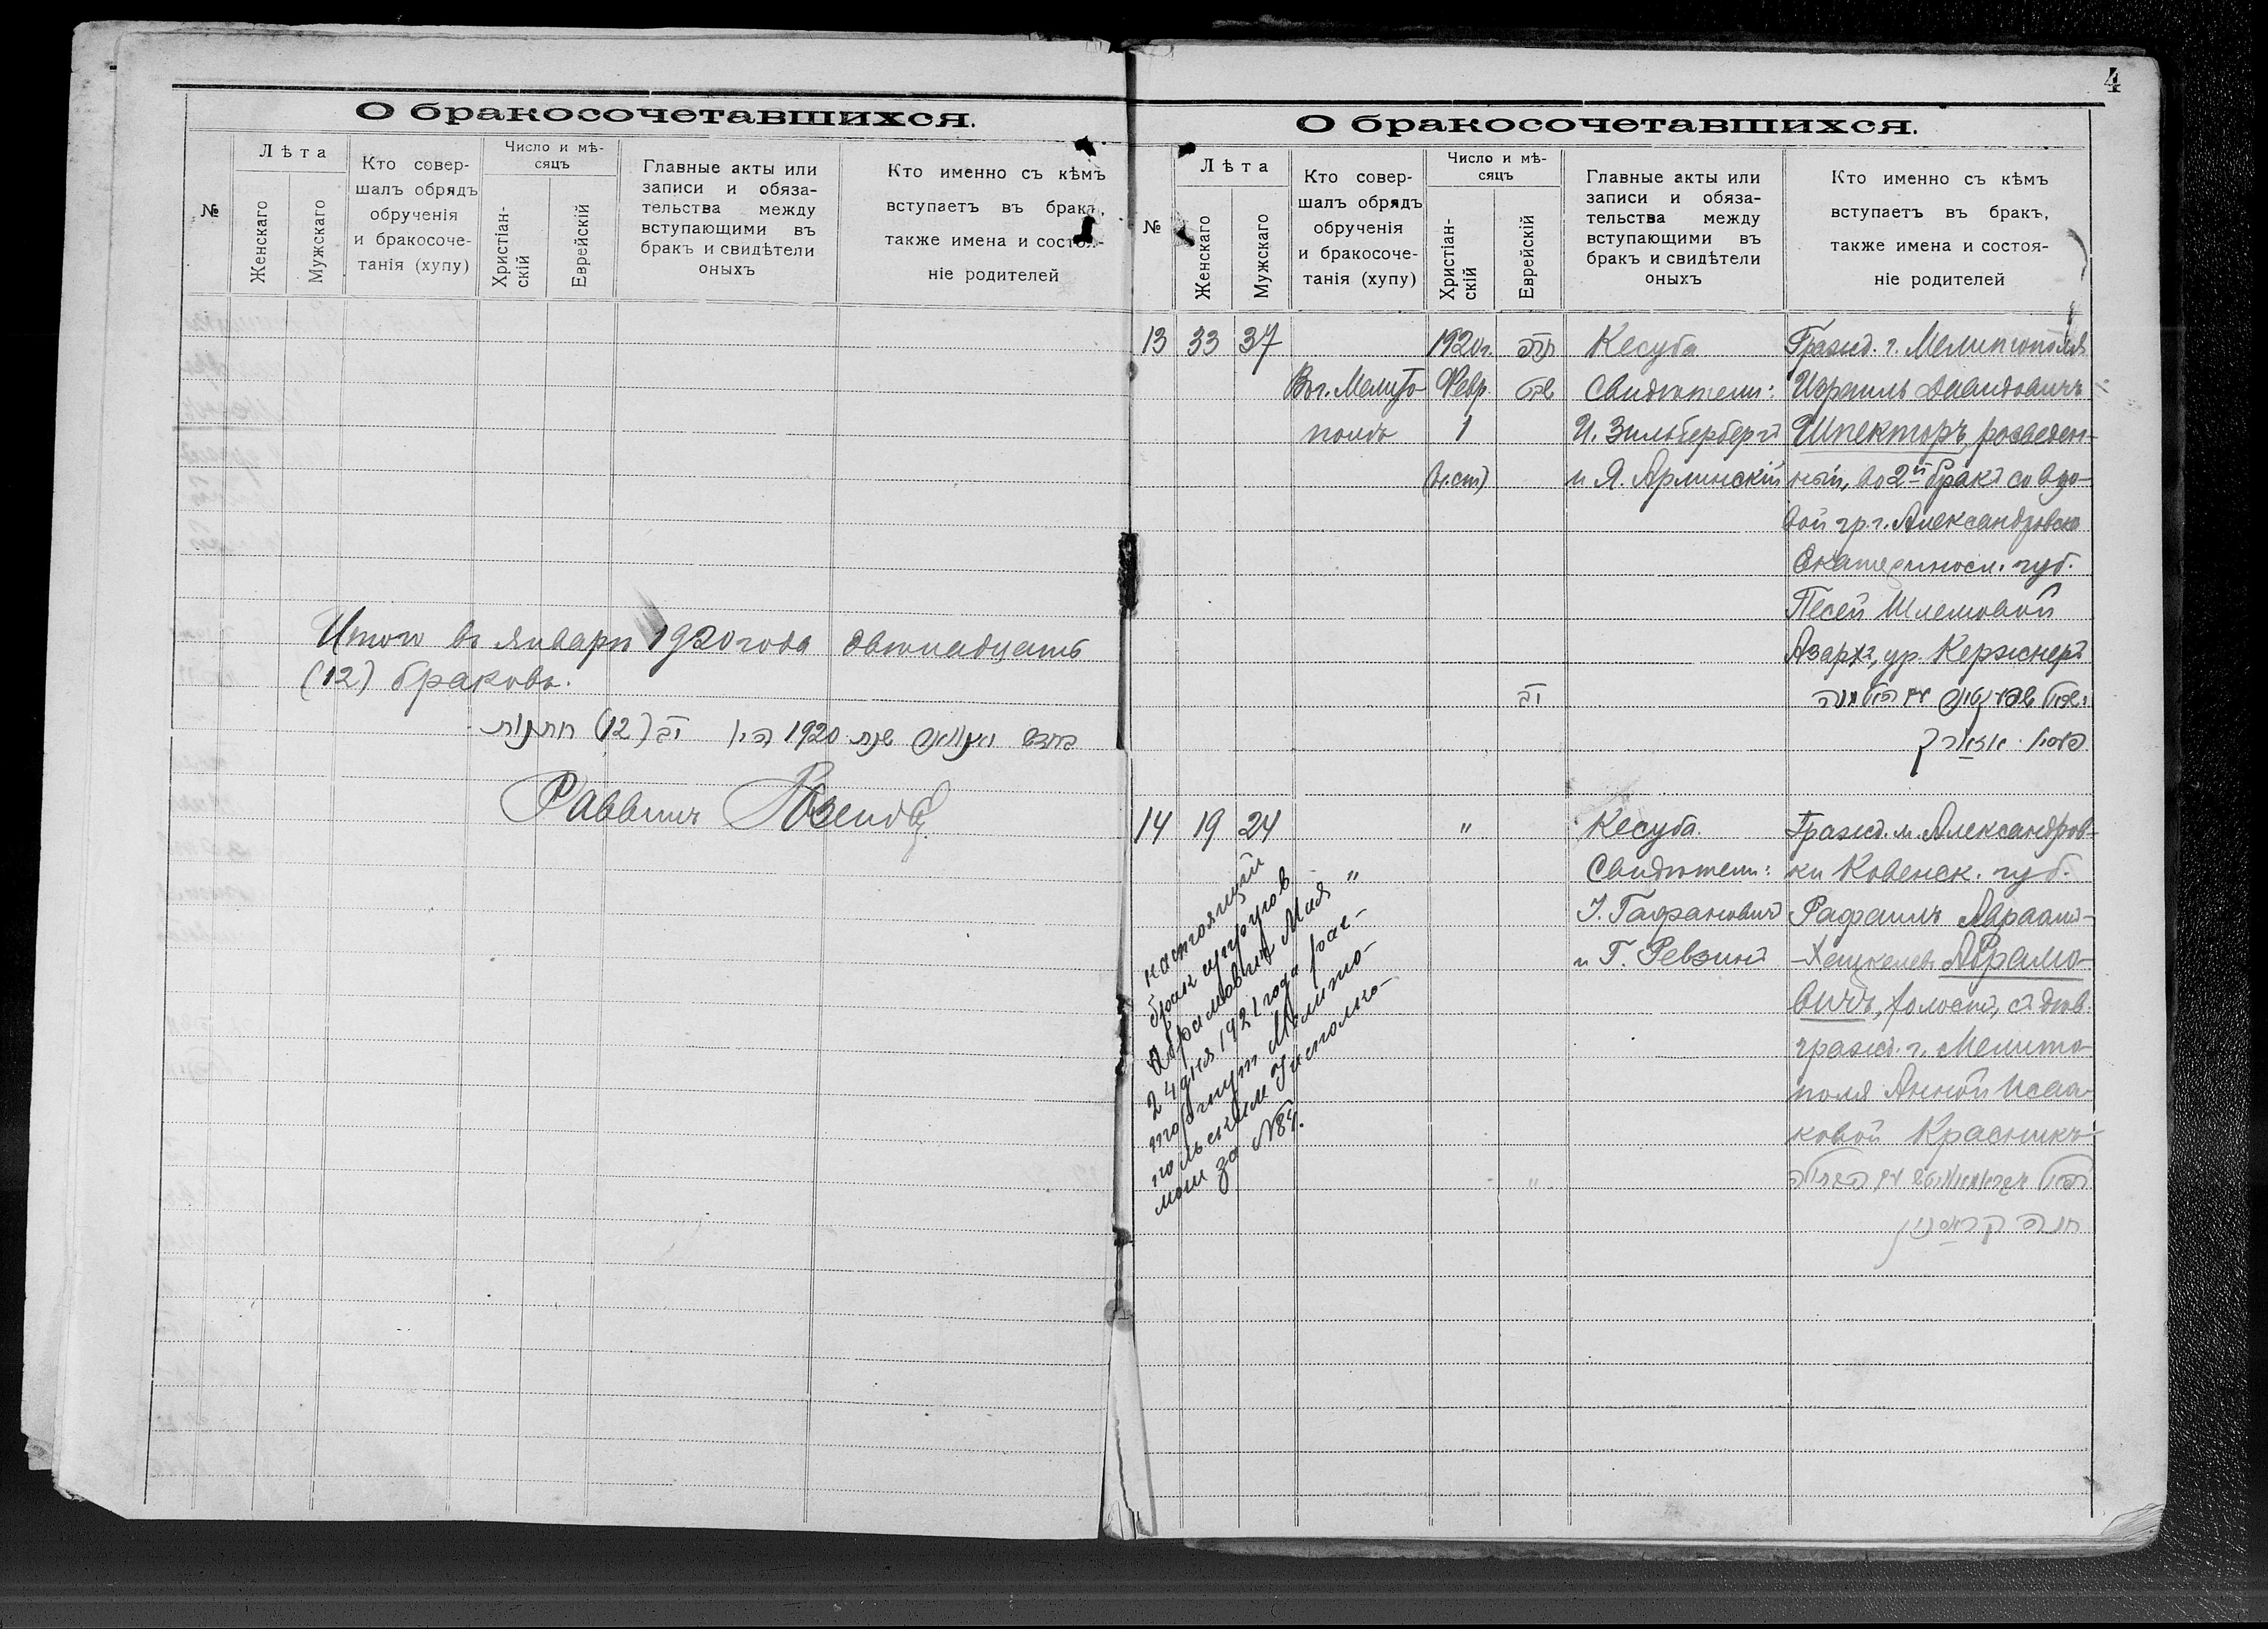 4
О бракосочетавшихся.
№
Лѣта
Женскаго
Мужскаго
Кто совер-
шалъ обрядъ
обрученія
и бракосоче-
танія (хупу)
Число и мѣ-
сяцъ
Христіан-
скій
Еврейскій
Главные акты или
записи и обяза-
тельства между
вступающими въ
бракъ и свидѣтели
оныхъ
Кто именно съ кѣмъ
вступаетъ въ бракъ,
также имена и состоя-
ніе родителей
Итого въ январѣ 1920 года двѣнадцать
(12) браковъ.
שנת 1920 היו יב (12) חתונות
Раввинъ
О бракосочетавшихся.
№
Лѣта
Женскаго
Мужскаго
Кто совер-
шалъ обрядъ
обрученія
и бракосоче-
танія (хупу)
Число и мѣ-
сяцъ
Христіан-
скій
Еврейскій
Главные акты или
записи и обяза-
тельства между
вступающими въ
бракъ и свидѣтели
оныхъ
Кто именно съ кѣмъ
вступаетъ въ бракъ,
также имена и состоя-
ніе родителей
13 33 37
Въ г. Мелито-
полѣ
1920 г.
Февр.
1
(н.ст)
שבט
יב
Кесуба
Свидѣтели:
И. Зильберберг
и Я. Арлинскій
Гражд. г. Мелитополя
Израиль Давидовичъ
Шпекторъ, разведен-
ный, во 2й бракъ со вдо-
вой гр. г. Александровска
Екатериносл. губ.
Песей Шлемовой
Азархъ, ур. Кержнеръ
14 19 24
"
"
"
Кесуба.
Свидѣтели:
и Г. Ревзинъ
Гражд. м. Александров-
ки Ковенск. губ.
Рафаилъ Авраам-
-Хацкелевъ Абрамо-
вичъ, холостъ, съ дѣв.
гражд. г. Мелито-
поля Анной Исаа-
ковой Красникъ
настоящий
брак супругов
Абрамович Мая
24 дня 1921 года рас-
торгнут Мелито-
польским Исполко-
мом за №84.